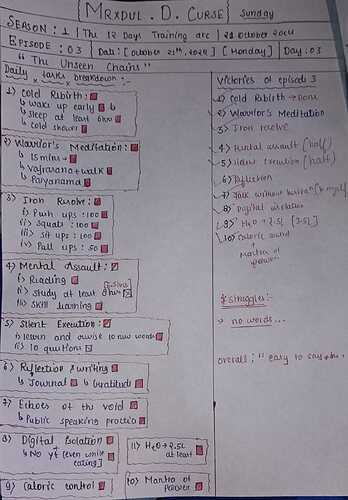 MRXDUL . D. CURSE
Sunday
SEASON : 1 | The 12 Days Training arc | 21 October 2024
EPISODE : 03 | Date: [October 21th, 2024] [Monday] | Day: 03
"The Unseen Chains"
Daily tasks breakdown :-
1) Cold Rebirth :
↳ wake up early
↳ sleep at least 6hr
↳ cold shower
2) Warrior's Meditation :
↳ 15 mins
↳ vajrasana + walk
↳ Paryanama
3) Iron Resolve :
i) Push ups : 100
ii) Squats : 100
iii) Sit ups : 100
iv) Pull ups : 50
4) Mental Assault :
i) Reading
ii) Study at least 8 hrs
iii) Skill learning
5) Silent Execution :
i) learn and revise 10 new words
ii) 10 questions
6) Reflection & writing
↳ Journal ↳ Gratitude
7) Echoes of the void
↳ Public speaking practice
8) Digital Isolation
↳ No yt (even while eating)
9) Caloric control
11) H2O → 2.5L at least
10) Mantra of power
Victories of episode 3
1) Cold Rebirth → Done
2) Warrior's Meditation
3) Iron resolve
4) Mental assault (half)
5) Silent Execution (half)
6) Reflection
7) Talk without
8) Digital isolation
9) H2O → 2.5L [3.5L]
10) Caloric control
↑
Mantra of power
# Struggles :-
→ no words...
overall : " easy to say